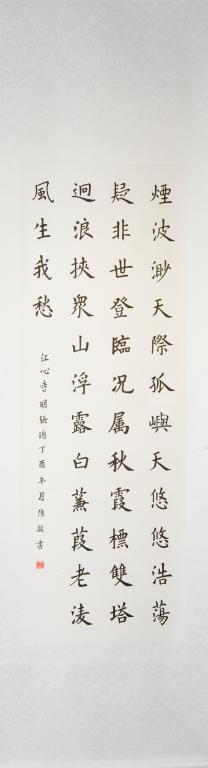 煙波渺天際孤嶼天悠悠浩蕩
疑非世登臨况属秋霞標雙塔
迥浪挾衆山浮露白蒹葭老凌
風生我愁
江心寺明張璁丁酉冬月陳書